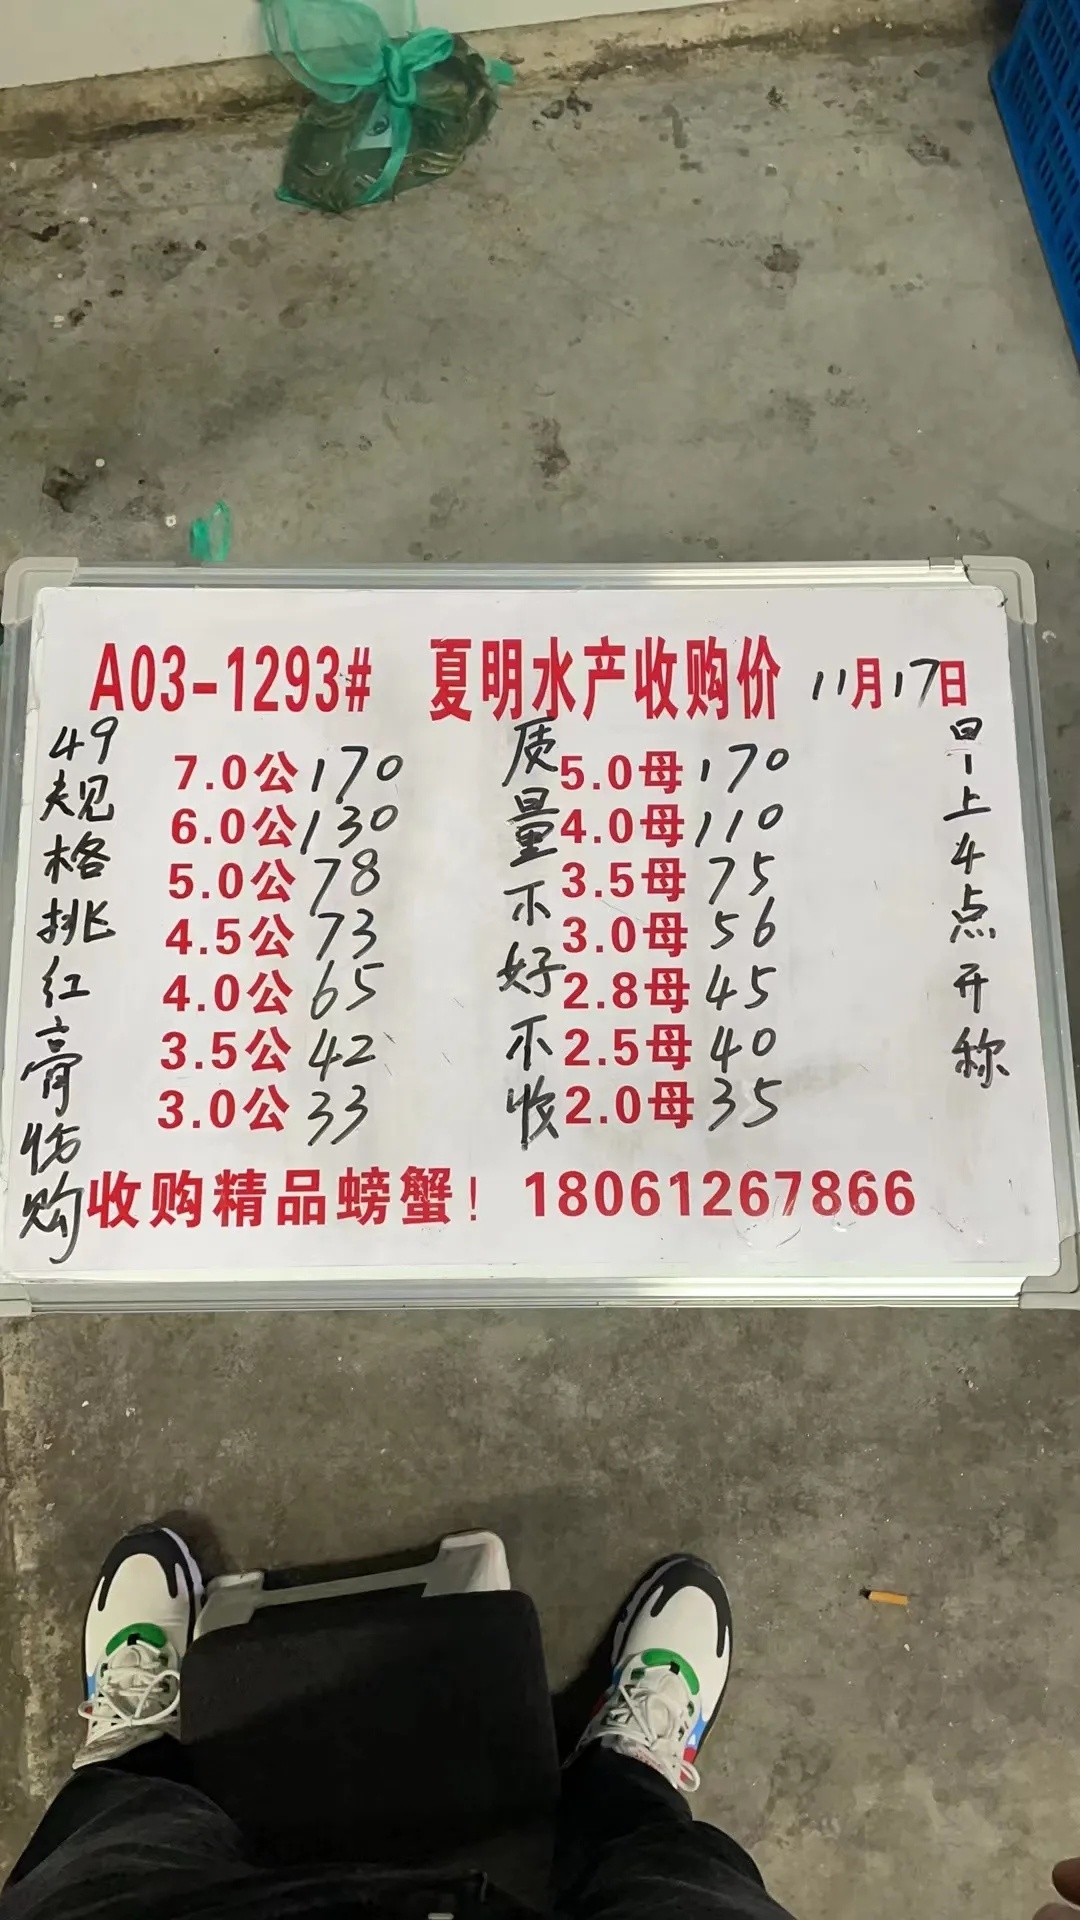 A03-1293# 夏明水产收购价 11月17日
49规格挑红膏收购
7.0公170
6.0公130
5.0公78
4.5公73
4.0公65
3.5公42
3.0公33
质量不好不收
5.0母170
4.0母110
3.5母75
3.0母56
2.8母45
2.5母40
2.0母35
早上4点开称
收购精品螃蟹！18061267866